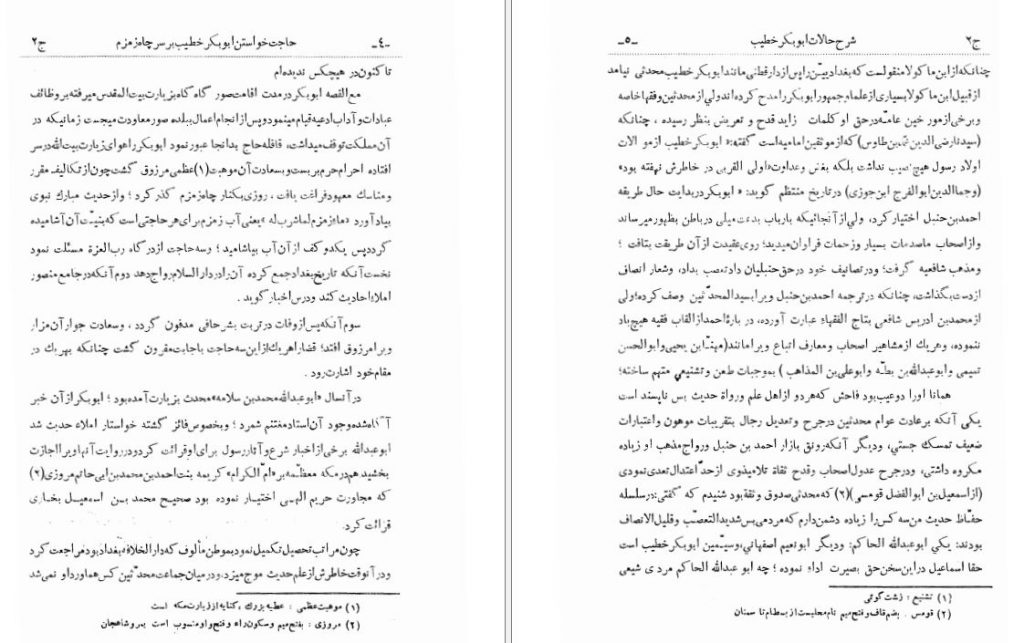 -٤- حاجت خواستن ابوبکر خطیب بر سر چاه زمزم ج٢
تاکنون در هیچکس ندیده‌ام
مع القصه ابوبکر در مدت اقامت صور گاه گاه بزیارت بیت المقدس میرفته بر وظائف
عبادات و آداب ادعیه قیام مینمود و پس از انجام اعمال ببلده صور معاودت میجست زمانیکه در
آن مملکت توقف میداشت، قافله حاج بدانجا عبور نمود ابوبکر را هوای زیارت بیت الله در سر
افتاده احرام حرم بر بست و بسعادت آن موهبت (١) عظمی مرزوق گشت چون از تکالیف مقرر
و مناسك معهود فراغت یافت، روزی بکنار چاه زمزم گذر کرد؛ و از حدیث مبارك نبوی
بیاد آورد «ماء زمزم لما شرب له» یعنی آب زمزم برای هر حاجتی است که بنیّت آن آشامیده
گردد پس یکدو کف از آن آب بیاشامید؛ و سه حاجت از درگاه رب العزة مسئلت نمود
نخست آنکه تاریخ بغداد جمع کرده آن را در دار السلام رواج دهد دوم آنکه در جامع منصور
املاء احادیث کند و درس اخبار گوید.
سوم آنکه پس از وفات در تربت بشر حافی مدفون گردد، و سعادت جوار آن مزار
ویرا مرزوق افتد؛ قضا را هریك از این سه حاجت باجابت مقرون گشت چنانکه بهریك در
مقام خود اشارت رود.
در آنسال «ابو عبدالله محمد بن سلامه» محدث بزیارت آمده بود؛ ابوبکر از آن خبر
آگاه شده وجود آن استاد مغتنم شمرد؛ و بخصوص فائز گشته خواستار املاء حدیث شد
ابو عبدالله برخی از اخبار شرع و آثار رسول برای او قرائت کرد و در روایت آنها ویرا اجازت
بخشید هم در مکه معظّمه بر «امّ الکرام» کریمه بنت احمد بن محمد بن ابی حاتم مروزی (٢)
که مجاورت حریم الهی اختیار نموده بود صحیح محمد بن اسمعیل بخاری
قرائت کرد.
چون مراتب تحصیل تکمیل نمود بموطن مألوف که دار الخلافه بغداد بود مراجعت کرد
و در آنوقت خاطرش از علم حدیث موج میزد، و در میان جماعت محدّثین کس هماورد او نمی‌شد
(١) موهبت عظمی: عطیه بزرك، کنایه از زیارت مکه است
(٢) مروزی: بفتح میم و سکون راء و فتح واو منسوب است بمرو شاهجان
ج٢ شرح حالات ابوبکر خطیب -٥-
چنانکه از ابن ماکولا منقولست که بغداد بیّن را پس از دارقطنی مانند ابوبکر خطیب محدثی نیامد
از قبیل ابن ماکولا بسیاری از علماء جمهور ابوبکر را مدح کرده‌اند ولی از محدثین و فقهاء خاصه
و برخی از مورخین عامّه در حق او کلمات زاید قدح و تعریض بنظر رسیده، چنانکه
(سید رضی الدین بن طاوس) که از موثقین امامیه است گفته: «ابوبکر خطیب از موالات
اولاد رسول هیچ نصیب نداشت بلکه بغض و عداوت اولی القربی در خاطرش نهفته بود»
(و جمال الدین ابو الفرج ابن جوزی) در تاریخ منتظم گوید: «ابوبکر در بدایت حال طریقه
احمد بن حنبل اختیار کرد، ولی از آنجائیکه بارباب بدعت میلی در باطن بظهور میرساند
و از اصحاب ما صدمات بسیار و زحمات فراوان میدید؛ روی عقیدت از آن طریقت بتافت؛
و مذهب شافعیه گرفت؛ و در تصانیف خود در حق حنبلیان داد تعصب بداد، و شعار انصاف
از دست بگذاشت، چنانکه در ترجمه احمد بن حنبل ویرا بسید المحدّثین وصف کرده؛ ولی
از محمد بن ادریس شافعی بتاج الفقهاء عبارت آورده، در بارهٔ احمد از القاب فقیه هیچ یاد
ننموده، و هریك از مشاهیر اصحاب و معارف اتباع ویرا مانند (مهنّا بن یحیی و ابو الحسن
تمیمی و ابو عبدالله بن بطّه و ابو علی بن المذاهب) بموجبات طعن و تشنیعی متهم ساخته؛
همانا او را دو عیب بود فاحش که هر دو از اهل علم و رواة حدیث بس ناپسند است
یکی آنکه بر عادت عوام محدثین در جرح و تعدیل رجال بتقریبات موهون و اعتبارات
ضعیف تمسك جستی، و دیگر آنکه رونق بازار احمد بن حنبل و رواج مذهب او زیاده
مکروه داشتی، و در جرح عدول اصحاب و قدح ثقاة تلامیذوی از حدّ اعتدال تعدی نمودی
(از اسمعیل بن ابو الفضل قومسی) (٢) که محدثی صدوق و ثقه بود شنیدم که گفتی: در سلسله
حفّاظ حدیث من سه کس را زیاده دشمن دارم که مردمی بس شدید التعصّب و قلیل الانصاف
بودند: یکی ابو عبدالله الحاکم: و دیگر ابو نعیم اصفهانی، و سیّمین ابوبکر خطیب است
حقا اسماعیل در این سخن حق بصیرت اداء نموده؛ چه ابو عبدالله الحاکم مردی شیعی
(١) تشنیع: زشت گوئی
(٢) قومس. بضم قاف و فتح میم نام محلیست از بسطام تا سمنان